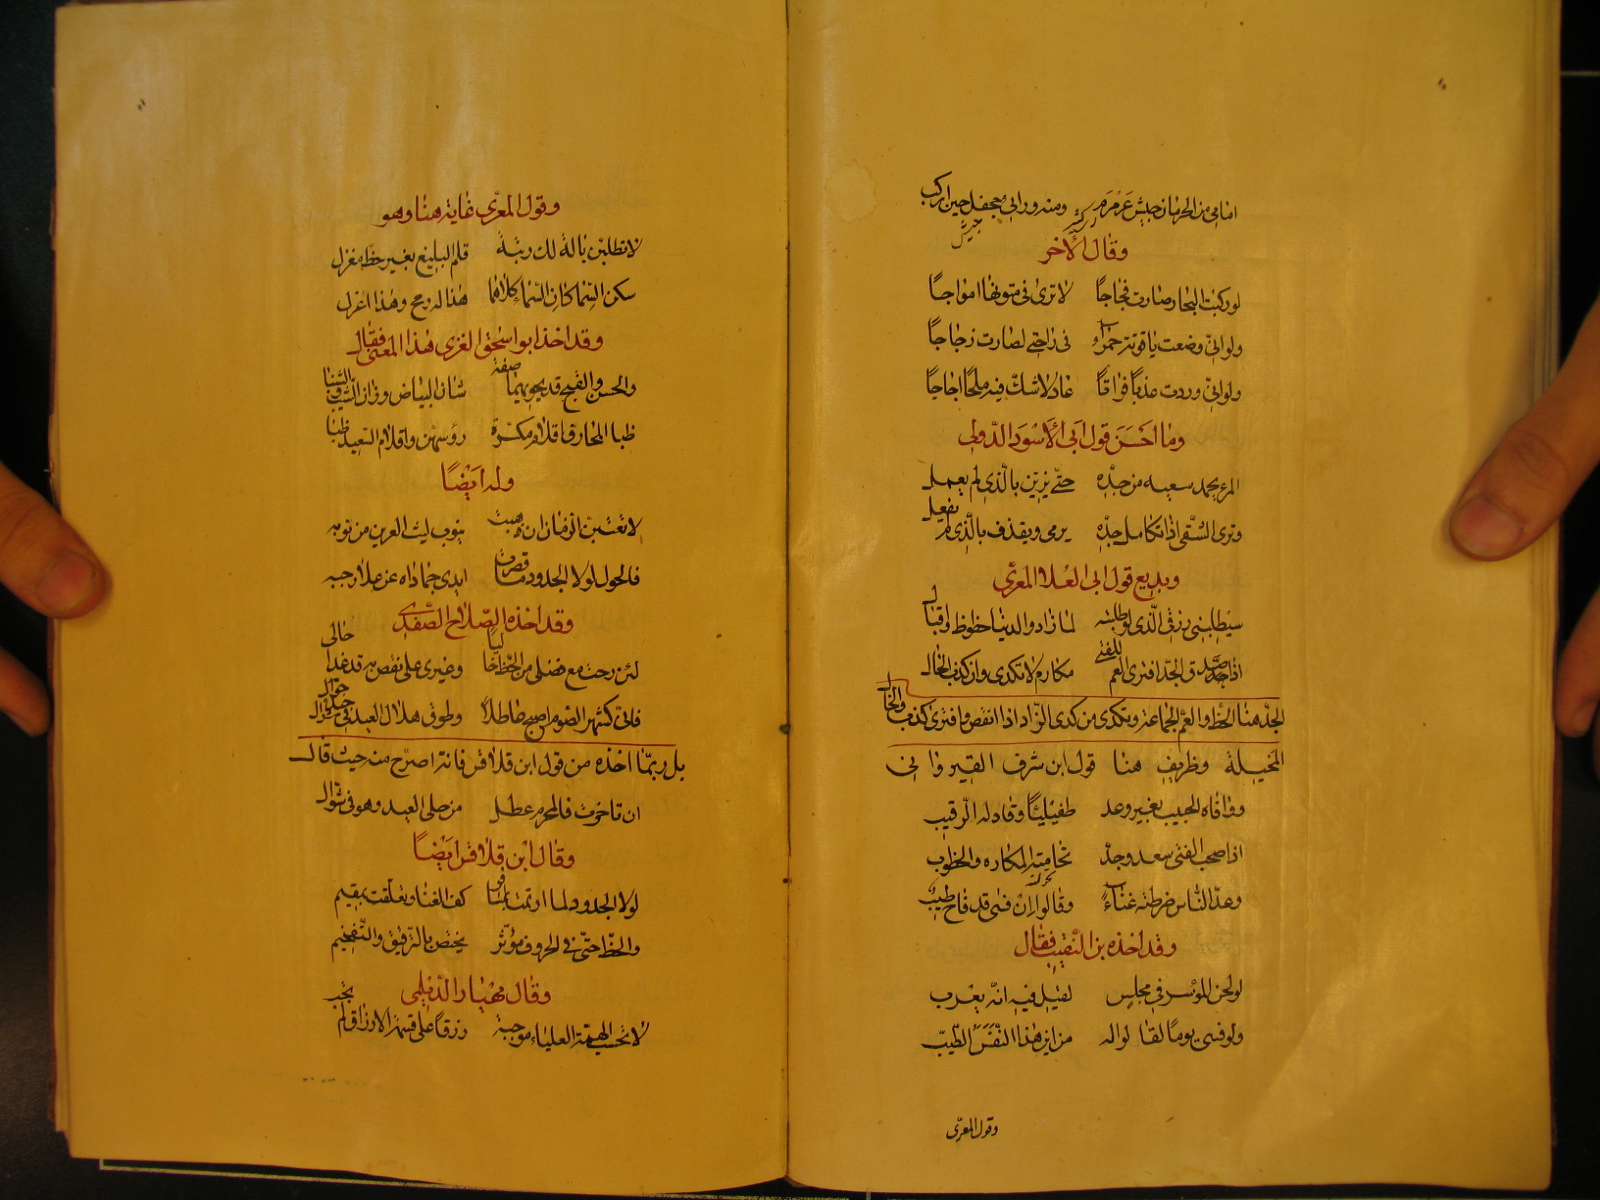 امامى من الحرمان جيش عرمرم ومنه ورائى جحفل حين اركب
وقال الاخر
لو ركبت البحار صارت فجاجًا لا ترى فى متونها امواجًا
ولو انّى وضعت ياقوتة حمراء فى راحتى لصارت زجاجًا
ولو انّى وردت عذبًا فراتًا عاد لا شكّ فيه ملحًا اجاجًا
وما احسن قول ابى الاسود الدّولى
المرء يحمد سعيه من جدّه حتّى يزيّن بالّذى لم يعمل
وترى الشّقى اذا تكامل جدّه يرمى ويقذف بالّذى لم يفعل
وبديع قول ابى العلا المعرّى
سيطلبنى رزقى الّذى لو طلبته لما زاد والدنيا حظوظ واقبال
اذا صدق الجد افترى العم للفتى مكارم لا تكدى وان كذب الخال
الجدّ هنا الحظّ والعمّ الجماعة وتكدى من كدى الزّاد اذا انقص وافترى كذب والخال
المخيلة وظريف هنا قول ابن شرف القيروانى
ووافاه الحبيب بغير وعد طفيليًّا وقاد له الرّقيب
اذا صحب الفتى سعد وجدّ تحامته المكاره والخطوب
وعدّ النّاس ضرطته غناءً وقالوا ان فسى قد فاح طيب
وقد اخذه بن النّقيب فقال
لو لحن الموسر فى مجلس لقيل فيه انّه يعرب
ولو فسى يومًا لقالوا له من اين هذا النّفس الطّيّب
وقول المعرّى
وقول المعرّى غاية هنا وهو
لا تطلبنّ بآلة لك رتبة قلم البليغ بغير حظّ مغزل
سكن السّما كان السّماء كلاهما هذا له رمح وهذا اعزل
وقد اخذ ابو اسحق الغزى هذا المعنى فقال
والحسن والقبح قد يحويهما صفة شان البياض وزان الشّيب والشنبا
ظبا المحارف اقلام مكسّرة رؤسهن واقلام السّعيد ظبا
وله ايضًا
لا تعتبنّ الزمان ان ذهبت بنوب ليث العرين من نوبه
فالحول لولا الجدود ما قصرت ايدى جماداه عن علا رجبه
وقد اخذه الصّلاح الصّفدى
لئن رحت مع فضلى من الحظّ خاليًا وغيرى على نقص به قد غدا حالى
فانّى كشهر الصّوم اصبح عاطلًا وطوق هلال العيد فى جيد شوّال
بل ربّما اخذه من قول ابن قلاقس فانّه اصرح منه حيث قال
ان تاخّرت فالمحرم عطل من حلى العيد وهو فى شوّال
وقال ابن قلاقس ايضًا
لولا الجدود لما ارتمت بمنافق كف الغنا وتعلّقت بمقيم
والحظّ حتّى فى الحروف مؤثّر يختص بالتّرقيق والتّفخيم
وقال مهيار الدّيلمى
لا تحسب الهمّة العلياء موجبة رزقًا على قسمة الارزاق لم يجب